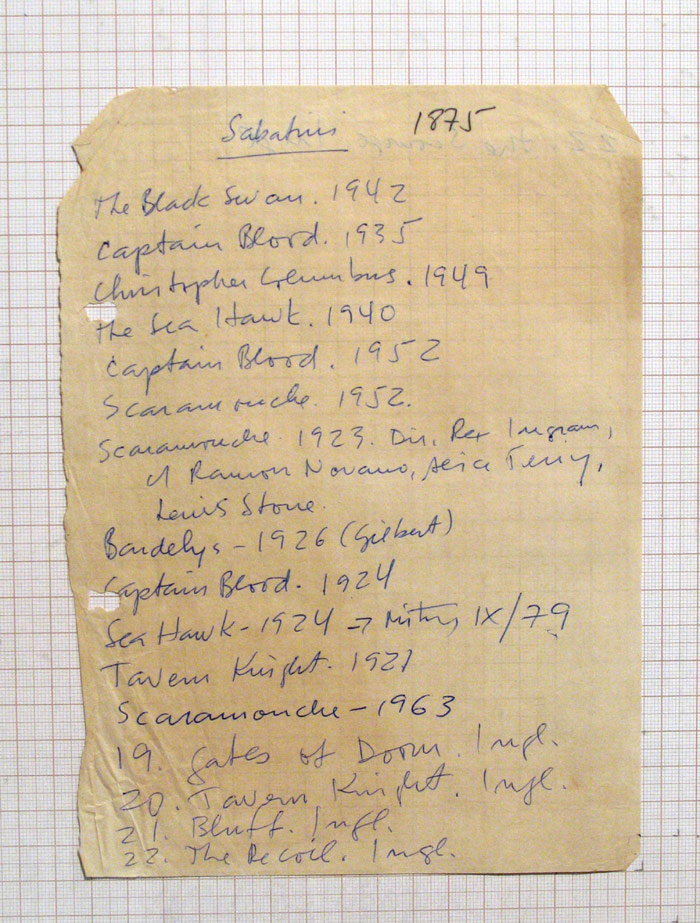 Sabatini 1875
The Black Swan. 1942
Captain Blood. 1935
Christopher Columbus. 1949
The Sea Hawk. 1940
Captain Blood. 1952
Scaramouche. 1952.
Scaramouche. 1923. Dir. Rex Ingram,
c/ Ramon Novarro, Alice Terry,
Lewis Stone.
Bardelys - 1926 (Gilbert)
Captain Blood. 1924
Sea Hawk - 1924 → IX/79
Tavern Knight. 1921
Scaramouche - 1963
19. Gates of Doom. Ingl.
20. Tavern Knight. Ingl.
21. Bluff. Ingl.
22. The Recoil. Ingl.